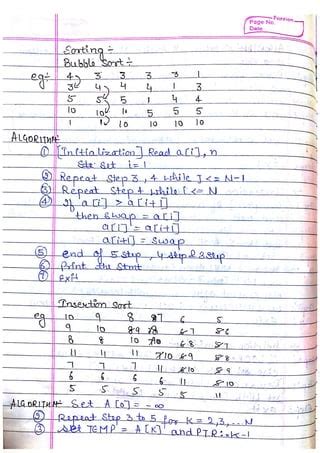 Page No.
Date
Sorting ÷
Bubble Sort ÷
eg ÷ 4 3 3 3 3 1
3 4 4 4 1 3
5 5 5 1 4 4
10 10 1 5 5 5
1 1 10 10 10 10
ALGORITHM
① [Initialization] Read a[i], n
Set i = 1
② Repeat Step 3, 4 while J <= N-1
③ Repeat Step 4 while i <= N
④ If a[i] > a[i+1]
then swap = a[i]
a[i] = a[i+1]
a[i+1] = swap
⑤ end of 5 step, 4 step & 3 step
⑥ Print the Stmt
⑦ Exit
Insertion Sort
eg 10 9 8 7 6 5
9 10 9 8 7 6
8 8 10 9 8 7
11 11 11 10 9 8
7 7 7 11 10 9
6 6 6 6 11 10
5 5 5 5 5 11
ALGORITHM Set A[0] = -∞
② Repeat Step 3 to 5 for K = 2, 3, .. N
③ set TEMP = A[K] and PTR := K-1